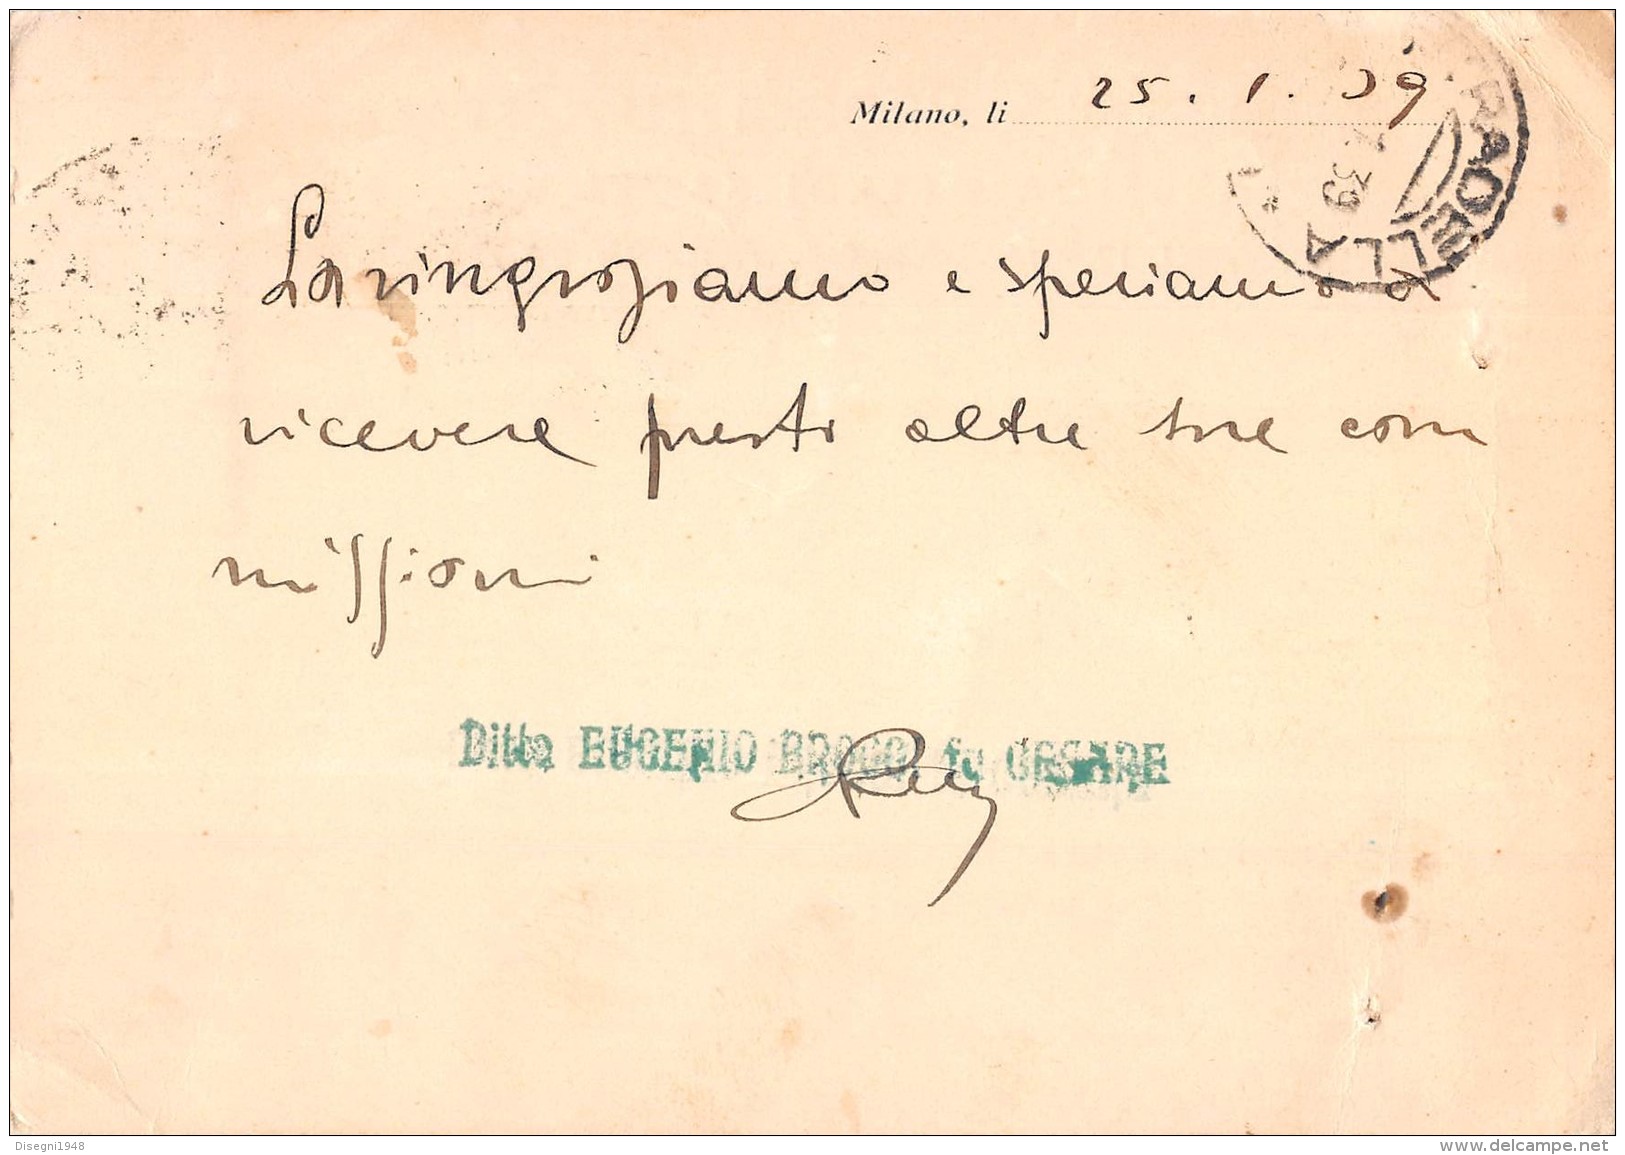 Milano, li 25. 1. 39
RADELLA
39
La ringraziamo e speriamo di
ricevere presto altre sue com
missioni
Ditta EUGENIO BROGGI fu CESARE
Disegni1948
www.delcampe.net